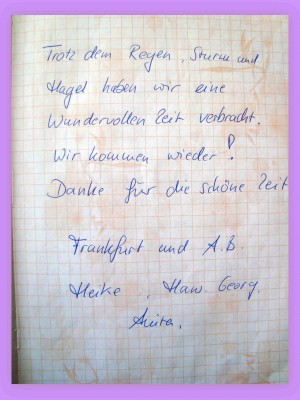 Trotz dem Regen, Sturm und
Hagel haben wir eine
Wundervollen Zeit verbracht.
Wir kommen wieder!
Danke für die schöne Zeit
Frankfurt und A.B.
Heike, Hans. Georg.
Anita.